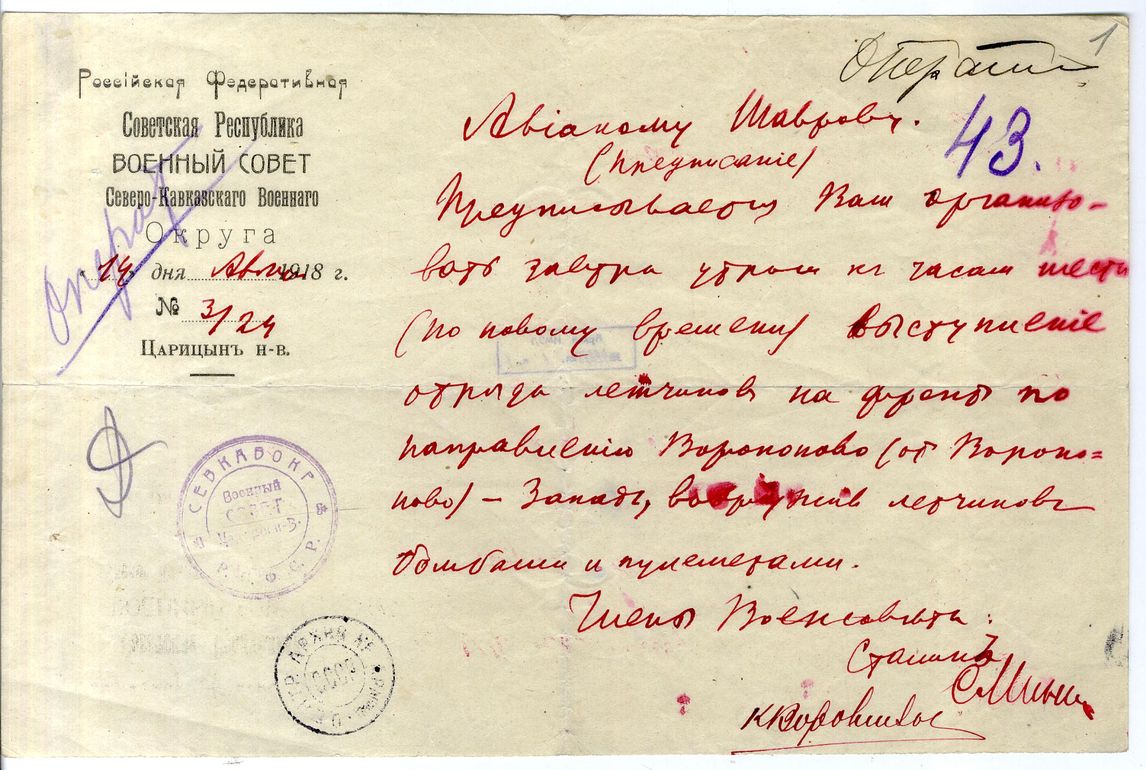 1
Операт
43.
Россійская Федеративная
Советская Республика
ВОЕННЫЙ СОВЕТ
Северо-Кавказскаго Военнаго
Округа
дня 1918 г.
№ 3/24
Царицынъ н-в.
Операт
Авіакому Шаврову.
(Предписаніе)
Предписывается Вам организо-
вать завтра утром к часам шести
(по новому времени) выступленіе
отряда летчиков на фронт по
направленію Воропоново (от Воропо=
ново) – Запад, вооружив летчиков
бомбами и пулеметами.
Члены Военсовета:
Сталинъ
С Минин
К Ворошилов
СЕВКАВОКР
Военный
Р. С. Ф. С. Р.
АРХИВ
СССР